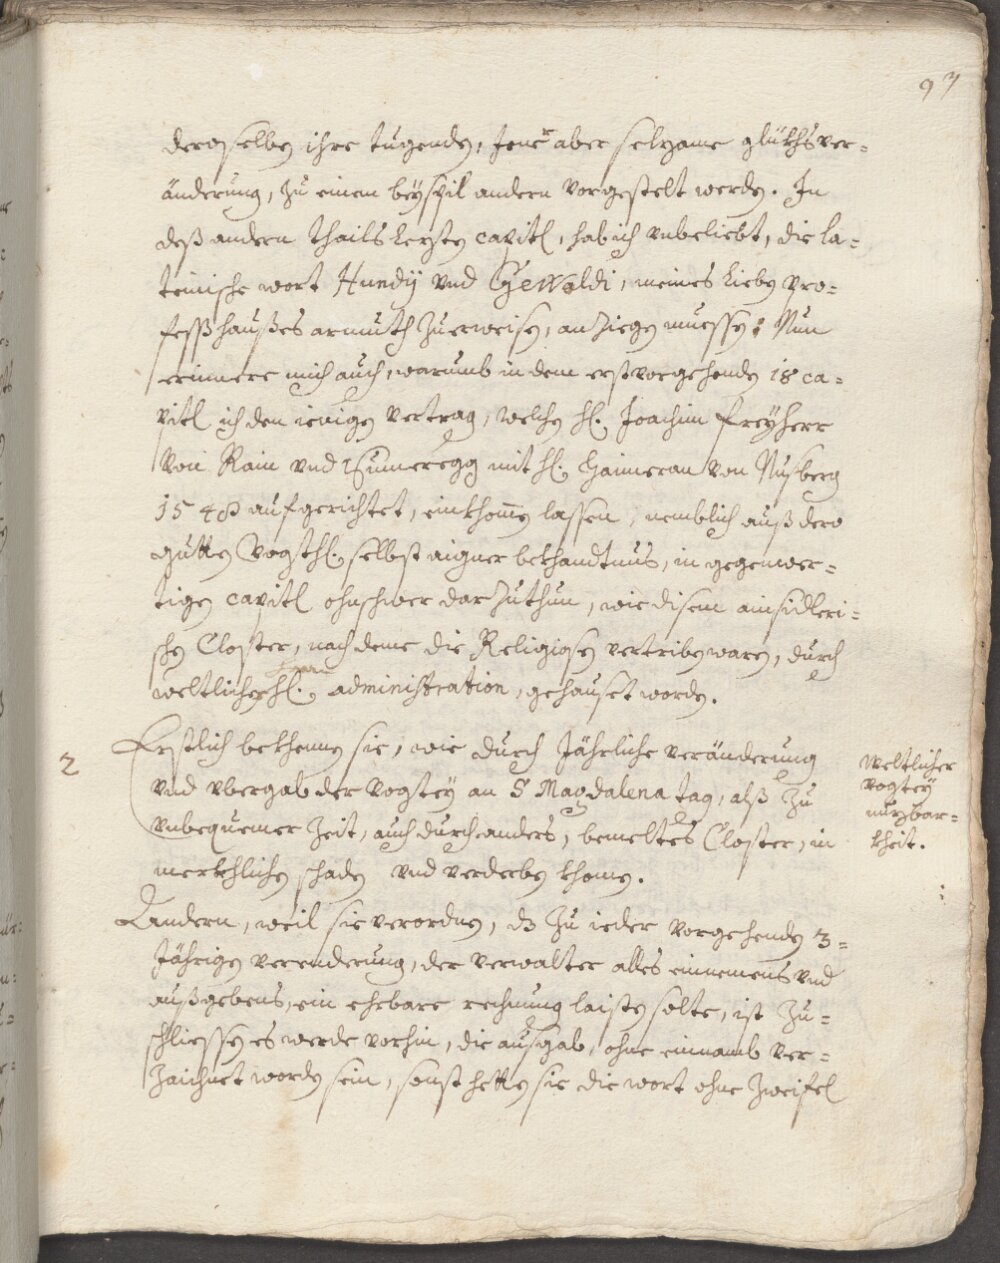 97
deroselben ihre tugenden, Jene aber selzame glükhsver=
änderung, zu einem beyspil andern vorgestelt werden. In
deß andern thails lezten capitl, hab ich vnbeliebt, die la=
teinische wort Hundij vnd Gewoldi, meines lieben pro=
fesshaußes armuth zuerweisen, anziegen muessen: Nun
erinnere mich auch, warumb in dem erstvorgehenden 18 ca=
pitl ich den ienigen vertrag, welchen H. Joachim freyherr
von Rain vnd Sumeregg mit H. Haimeran von Nusberg
1540 aufgerichtet, einkhomen lassen, nemblich auß dero
gutten Vogth. selbst aigner bekhandtnus, in gegenwer=
tigen capitl ohnschwer darzuthun, wie disem ainsidleri=
schen Closter, nach deme die Religiosen vertriben waren, durch
weltlicher H. administration, gehauset worden.
2
Erstlich bekhennen sie, wie durch Jährliche veränderung
vnd vbergab der vogtey an S Magdalena tag, alß zu
vnbequemer zeit, auch durch anders, bemeltes Closter, in
merkhlichen schaden vnd verderben khomen.
weltlicher
vogtey
nuzbar=
kheit.
Andern, weil sie verordnen, dz zu ieder vorgehenden 3=
Jährigen verenderung, der verwalter alles einnemens vnd
außgebens, ein ehrbare rechnung laisten solte, ist zu=
schliessen es werde vorhin, die ausgab, ohne einnamb ver=
zaichnet worden sein, sonst hetten sie die wort ohne zweifel